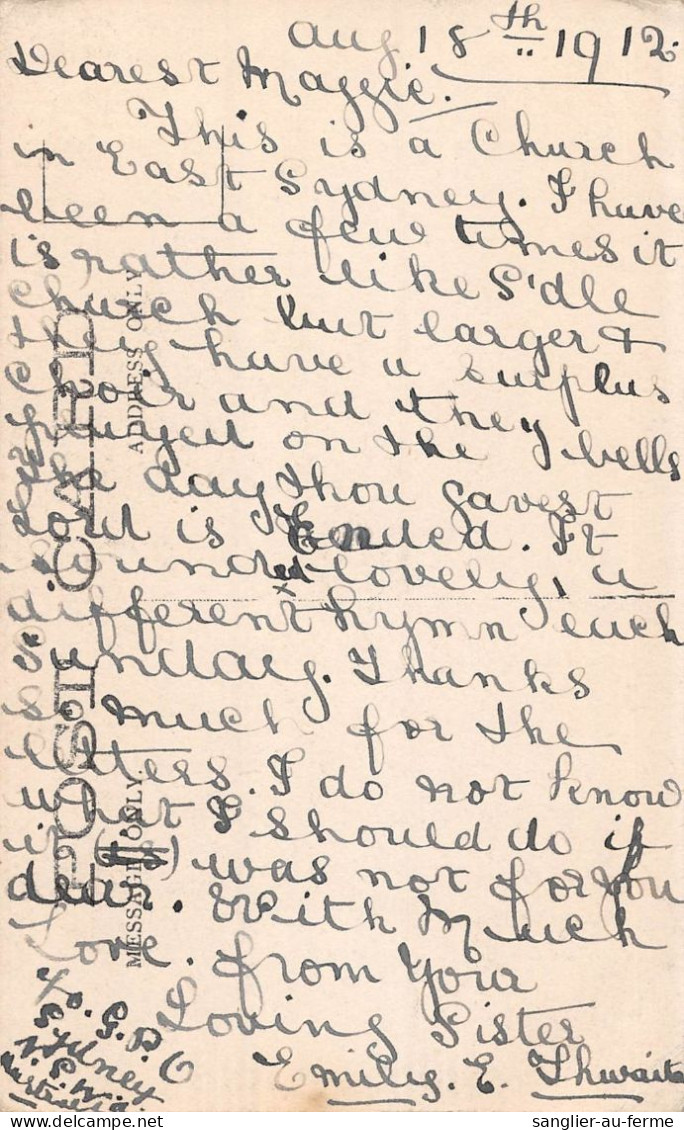 Aug 18th 1912.
Dearest Maggie.
This is a Church
in East Sydney. I have
been a few times it
is rather like S'dle
Church but larger &
they have a surplus
Choir and they
played on the bells
the day thou gavest
Lord is Ended. It
sounded lovely, a
different hymn each
Sunday. Thanks
so much for the
letters. I do not know
what I should do if
it was not for you
dear. With Much
Love. from Your
Loving Sister
Emily. E. Thwaite
G.P.O
Sydney
N.S.W.
Australia
POST CARD
ADDRESS ONLY
MESSAGE ONLY
sanglier-au-ferme